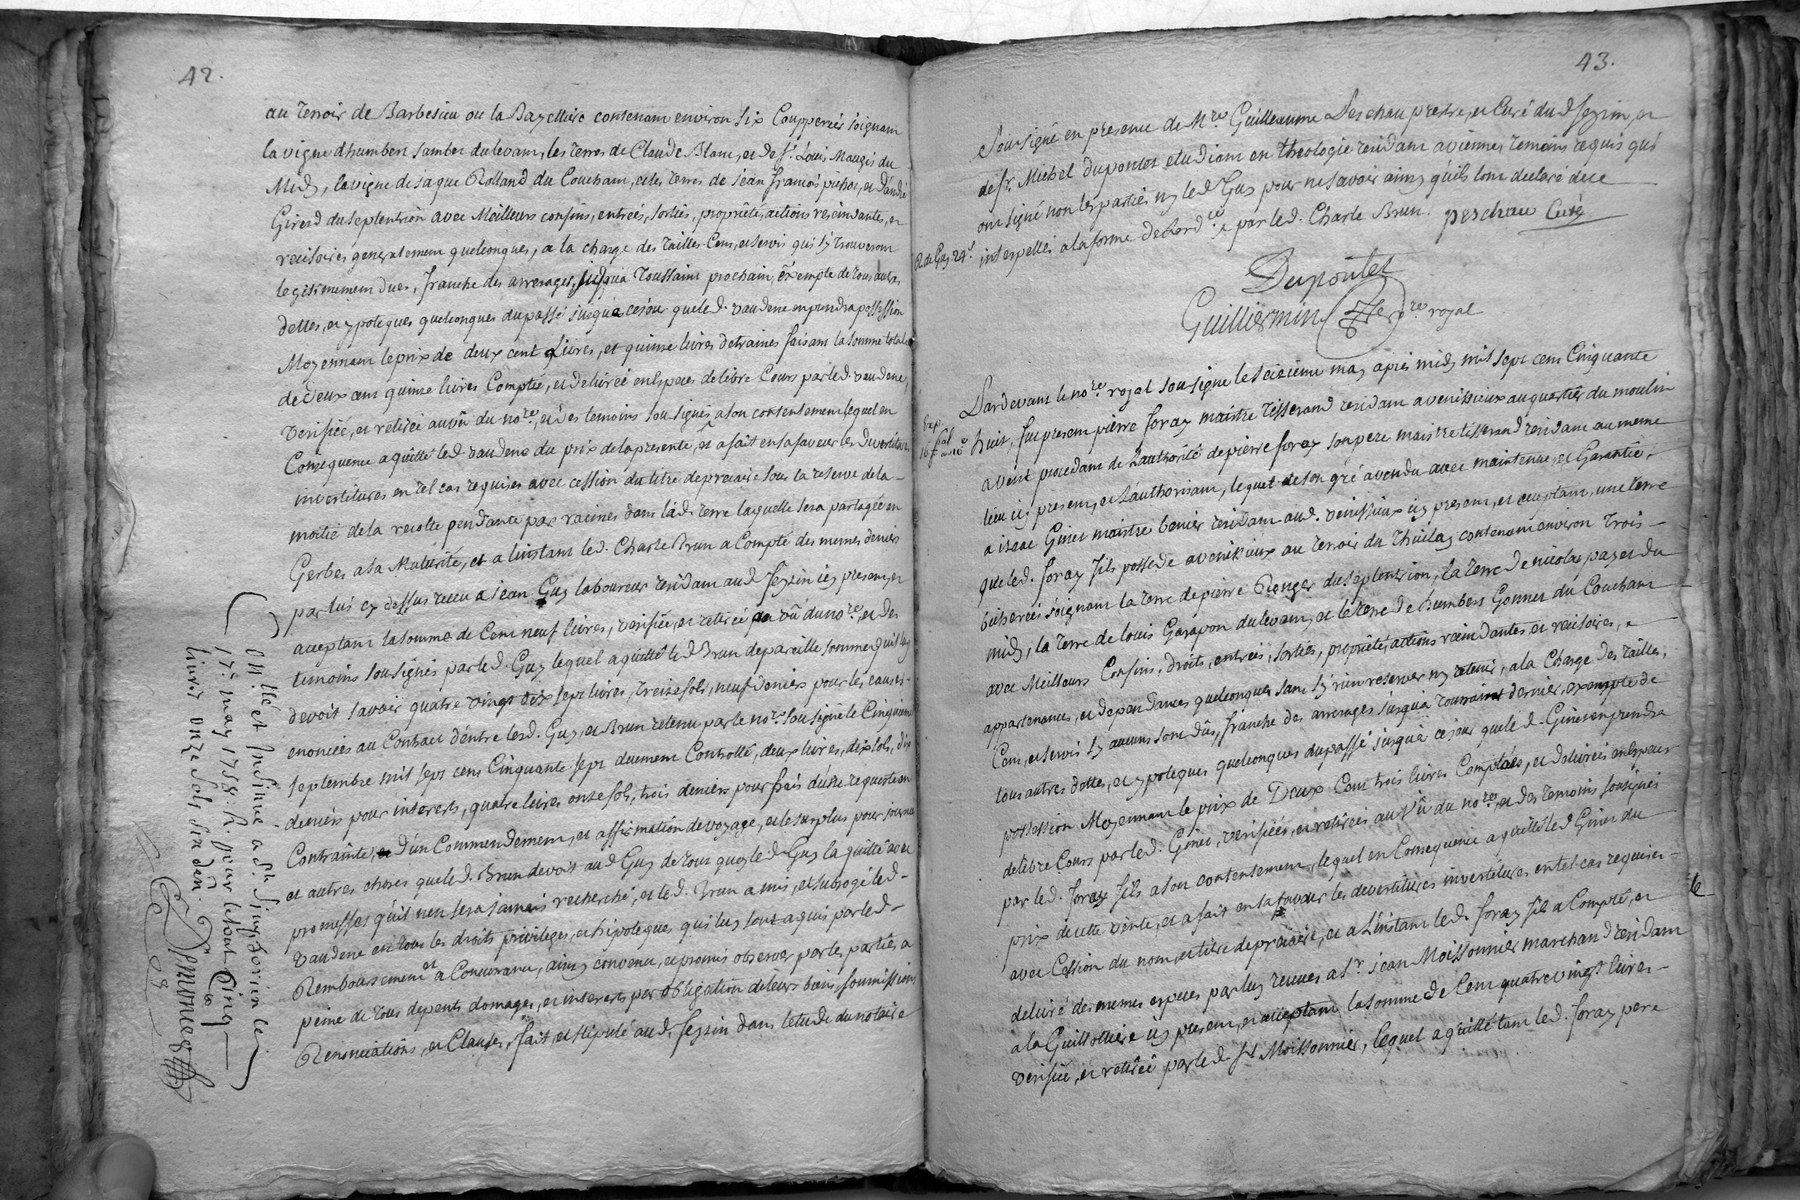 42.
au terroir de Barbesieu ou la Bazelliere contenam environ six Couppereés joignam
la vigne d'humbert Jambon du levam, les terres de Claude Blanc, et de Sr. Louis Maugis du
Midy, la vigne de Jaque Rolland du Coucham, et les terres de Jean François pichon, et d'andré
Gired du septentrion avec Meilleurs confins, entreés, sorties, proprietes, actions rescindantes, et
recisoires generalement quelconques, a la charge des tailles Cens, et servis qui sy trouveront
legitimement dues, franche des arrerages jusqua toussaint prochain, exempte de tous autres
dettes, et ypoteques quelconques du passé jusqu'a cejour que led. vaudene en prendra possession
Moyennam le prix de deux cent Livres, et quinse livres detraines faisam la somme totale
de deux cens quinse livres Comptée, et delivrée en Especes de libre Cours par led. vaudene,
verifiée, et retirée au vû du nore. et des temoins soussignés a son consentement lequel en
Consequence a quitté led. vaudene du prix de la presente, et a fait en sa faveur les devestitures
investitures en tel cas requises avec cession du titre de precaire sous la reserve de la
moitié de la recolte pendante par racines dans lad. terre laquelle sera partagée en
Gerbes a la Maturité, et a linstam led. Charle Brun a Compté des memes deniers
par luy cy dessus receu a jean Guy laboureur residam aud. feyzin icy presem, et
acceptam la somme de Cem neuf livres, verifiée, et retirée au vû du nore. et des
temoins soussignés par led. Guy lequel a quitté led. Brun de pareille somme quil luy
devoit savoir quatre vingt dix sept livres, treize sols, neuf deniers pour les causes
enoncées au Contract d'entre lesd. Guy, et Brun retenu par le nore. soussigné le Cinquieme
septembre mil sept cens Cinquante sept duement Controllé, deux livres, dix sols, dix
deniers pour interests, quatre livres onze sols, trois deniers pour frais d'une requestion
Contrainte, d'un Commendemem, et affirmation de voyage, et le surplus pour journées
et autres choses que led. Brun devoit aud. Guy de tout quoy led. Guy la quitté avec
promesses quil nen sera jamais recherché, et led. Brun a mis, et subrogé led.
vaudene en tous les droits privileges, et hipoteques, qui luy sont aquis par led.
Remboursement et a Concurance, ainsy convenu, et promis observer par les parties, a
peine de tous depents domages, et interests par obligation de leurs biens, soumissions
Renonciations, et Clauses, fait, et stipulé aud. feyzin dans letude du notaire
Onllé et insinué a St. Simphorien le
17e. may 1758. R. pour le tout Cinq
livres onze sols six den.
43.
Soussigné en presence de Mre. Guilleaume Peschau prestre, et Curé dud. feyzin, et
de Sr. Michel dupontet etudiant en theologie residam a vienne temoins requis qui
ont signé non les parties ny led. Guy pour ne savoir ainsy qu'ils lont declaré de ce
interpellés a la forme de lord.ce par led. Charle Brun. peschau Curé
Dupontet
Guilliermin nre royal
Pardevant le nore. royal soussigné le seizieme may apres midy mil sept cens Cinquante
huit, fut presem pierre foray maistre tisserand residam a venissieux au quartier du moulin
a vent procedam de l'authorité de pierre foray son pere maistre tisserand residam au meme
lieu icy presem, et l'authorisam, lequel de son gré a vendu avec maintenue, et Garantie,
a isaac Ginet maistre residam aud. venissieux icy presem, et acceptam, une terre
que led. foray fils possede a venissieux au terroir du Thuilay contenam environ trois
bicherées joignam la terre de pierre Roger du septentrion, la terre de nicolas payet du
midy, la terre de louis Garapon du levam, et le terre de humbert Gonnet du Coucham
avec Meilleurs Confins, droits, entrées, sorties, proprietés, actions rescindantes et recisoires,
appartenances, et dependances quelconques sans sy rien reserver ny retenir, a la Charge des tailles,
Cens, et servis sy aucuns sont dûs, franche des arrerages jusqua toussaint dernier, exempte de
tous autres dettes, et ypoteques quelconques du passé jusqu'a cejour que led. Ginet en prendra
possession Moyennam le prix de Deux Cens trois livres Comptées, et delivrées en Especes
de libre Cours par led. Ginet, verifiées, et retirées au vû du nore. et des temoins soussignés
par led. foray fils a son consentement, lequel en Consequence a quitté led. Ginet du
prix de cette vente, et a fait en sa faveur les devestitures investitures en tel cas requises
avec Cession du nom, et titre de precaire, et a l'instam led. foray fils a Compté, et
delivré des memes especes par luy receues a Sr. jean Moissonnier marchand residam
a la Guillottiere icy presem, et acceptam la somme de Cem quatre vingt livres
verifiée, et retirée par led. Sr. Moissonnier, lequel a quitté tam led. foray pere